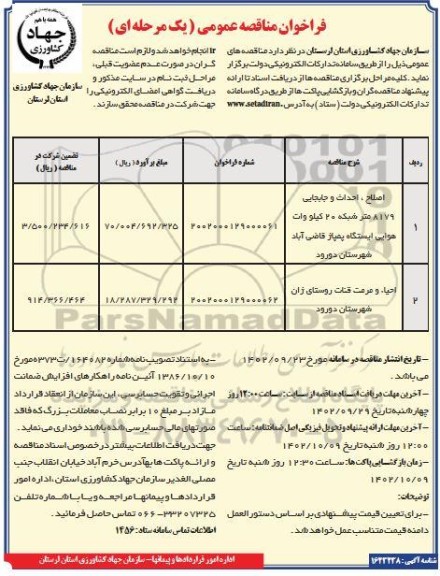 همه با هم
جهاد
کشاورزی
سازمان جهاد کشاورزی
استان لرستان
فراخوان مناقصه عمومی (یک مرحله ای)
سازمان جهاد کشاورزی استان لرستان در نظر دارد مناقصه های
عمومی ذیل را از طریق سامانه تدارکات الکترونیکی دولت برگزار
نماید. کلیه مراحل برگزاری مناقصه ها از دریافت اسناد تا ارائه
پیشنهاد مناقصه گران و بازگشایی پاکت ها از طریق درگاه سامانه
تدارکات الکترونیکی دولت (ستاد) به آدرس www.setadiran.
ir انجام خواهد شد و لازم است مناقصه
گران در صورت عدم عضویت قبلی،
مراحل ثبت نام در سایت مذکور و
دریافت گواهی امضای الکترونیکی را
جهت شرکت در مناقصه محقق سازند.
ردیف
شرح مناقصه
شماره فراخوان
مبلغ برآورد (ریال)
تضمین شرکت در
مناقصه (ریال)
۱
اصلاح ، احداث و جابجایی
۸۱۷۹ متر شبکه ۲۰ کیلو وات
هوایی ایستگاه پمپاژ قاضی آباد
شهرستان دورود
۲۰۰۲۰۰۰۱۲۹۰۰۰۰۶۱
۷۰/۰۰۴/۶۹۲/۳۲۵
۳/۵۰۰/۲۳۴/۶۱۶
۲
احیاء و مرمت قنات روستای ژان
شهرستان دورود
۲۰۰۲۰۰۰۱۲۹۰۰۰۰۶۲
۱۸/۲۸۷/۳۲۹/۲۹۲
۹۱۴/۳۶۶/۴۶۴
ParsNamadData
- تاریخ انتشار مناقصه در سامانه مورخ ۱۴۰۲/۰۹/۲۳
می باشد.
- آخرین مهلت دریافت اسناد مناقصه از سایت: ساعت ۱۴:۰۰ روز
چهارشنبه تاریخ ۱۴۰۲/۰۹/۲۹
- آخرین مهلت ارائه پیشنهاد و تحویل فیزیکی اصل ضمانتنامه: ساعت
۱۲:۰۰ روز شنبه تاریخ ۱۴۰۲/۱۰/۰۹
- زمان بازگشایی پاکت ها: ساعت ۱۲:۳۰ روز شنبه تاریخ
۱۴۰۲/۱۰/۰۹
توضیحات:
- برای تعیین قیمت پیشنهادی بر اساس دستور العمل
دامنه قیمت متناسب عمل خواهد شد.
- به استناد تصویب نامه شماره ۱۶۴۰۸۲/ت۳۷۳ه مورخ
۱۳۸۶/۱۰/۱۰ آئین نامه راهکارهای افزایش ضمانت
اجرائی و تقویت حسابرسی، این سازمان از انعقاد قرارداد
مازاد بر مبلغ ۱۰ برابر نصاب معاملات بزرگ که فاقد
صورتهای مالی حسابرسی شده باشند خودداری می نماید.
جهت دریافت اطلاعات بیشتر در خصوص اسناد مناقصه
و ارائه پاکت ها به آدرس خرم آباد خیابان انقلاب جنب
مصلی الغدیر سازمان جهاد کشاورزی استان، اداره امور
قراردادها و پیمانها مراجعه و یا با شماره تلفن
۰۶۶-۳۳۲۰۷۳۲۵ تماس حاصل فرمائید.
اطلاعات تماس سامانه ستاد: ۱۴۵۶
شناسه آگهی: ۱۶۲۲۴۳۸
اداره امور قراردادها و پیمانها - سازمان جهاد کشاورزی استان لرستان